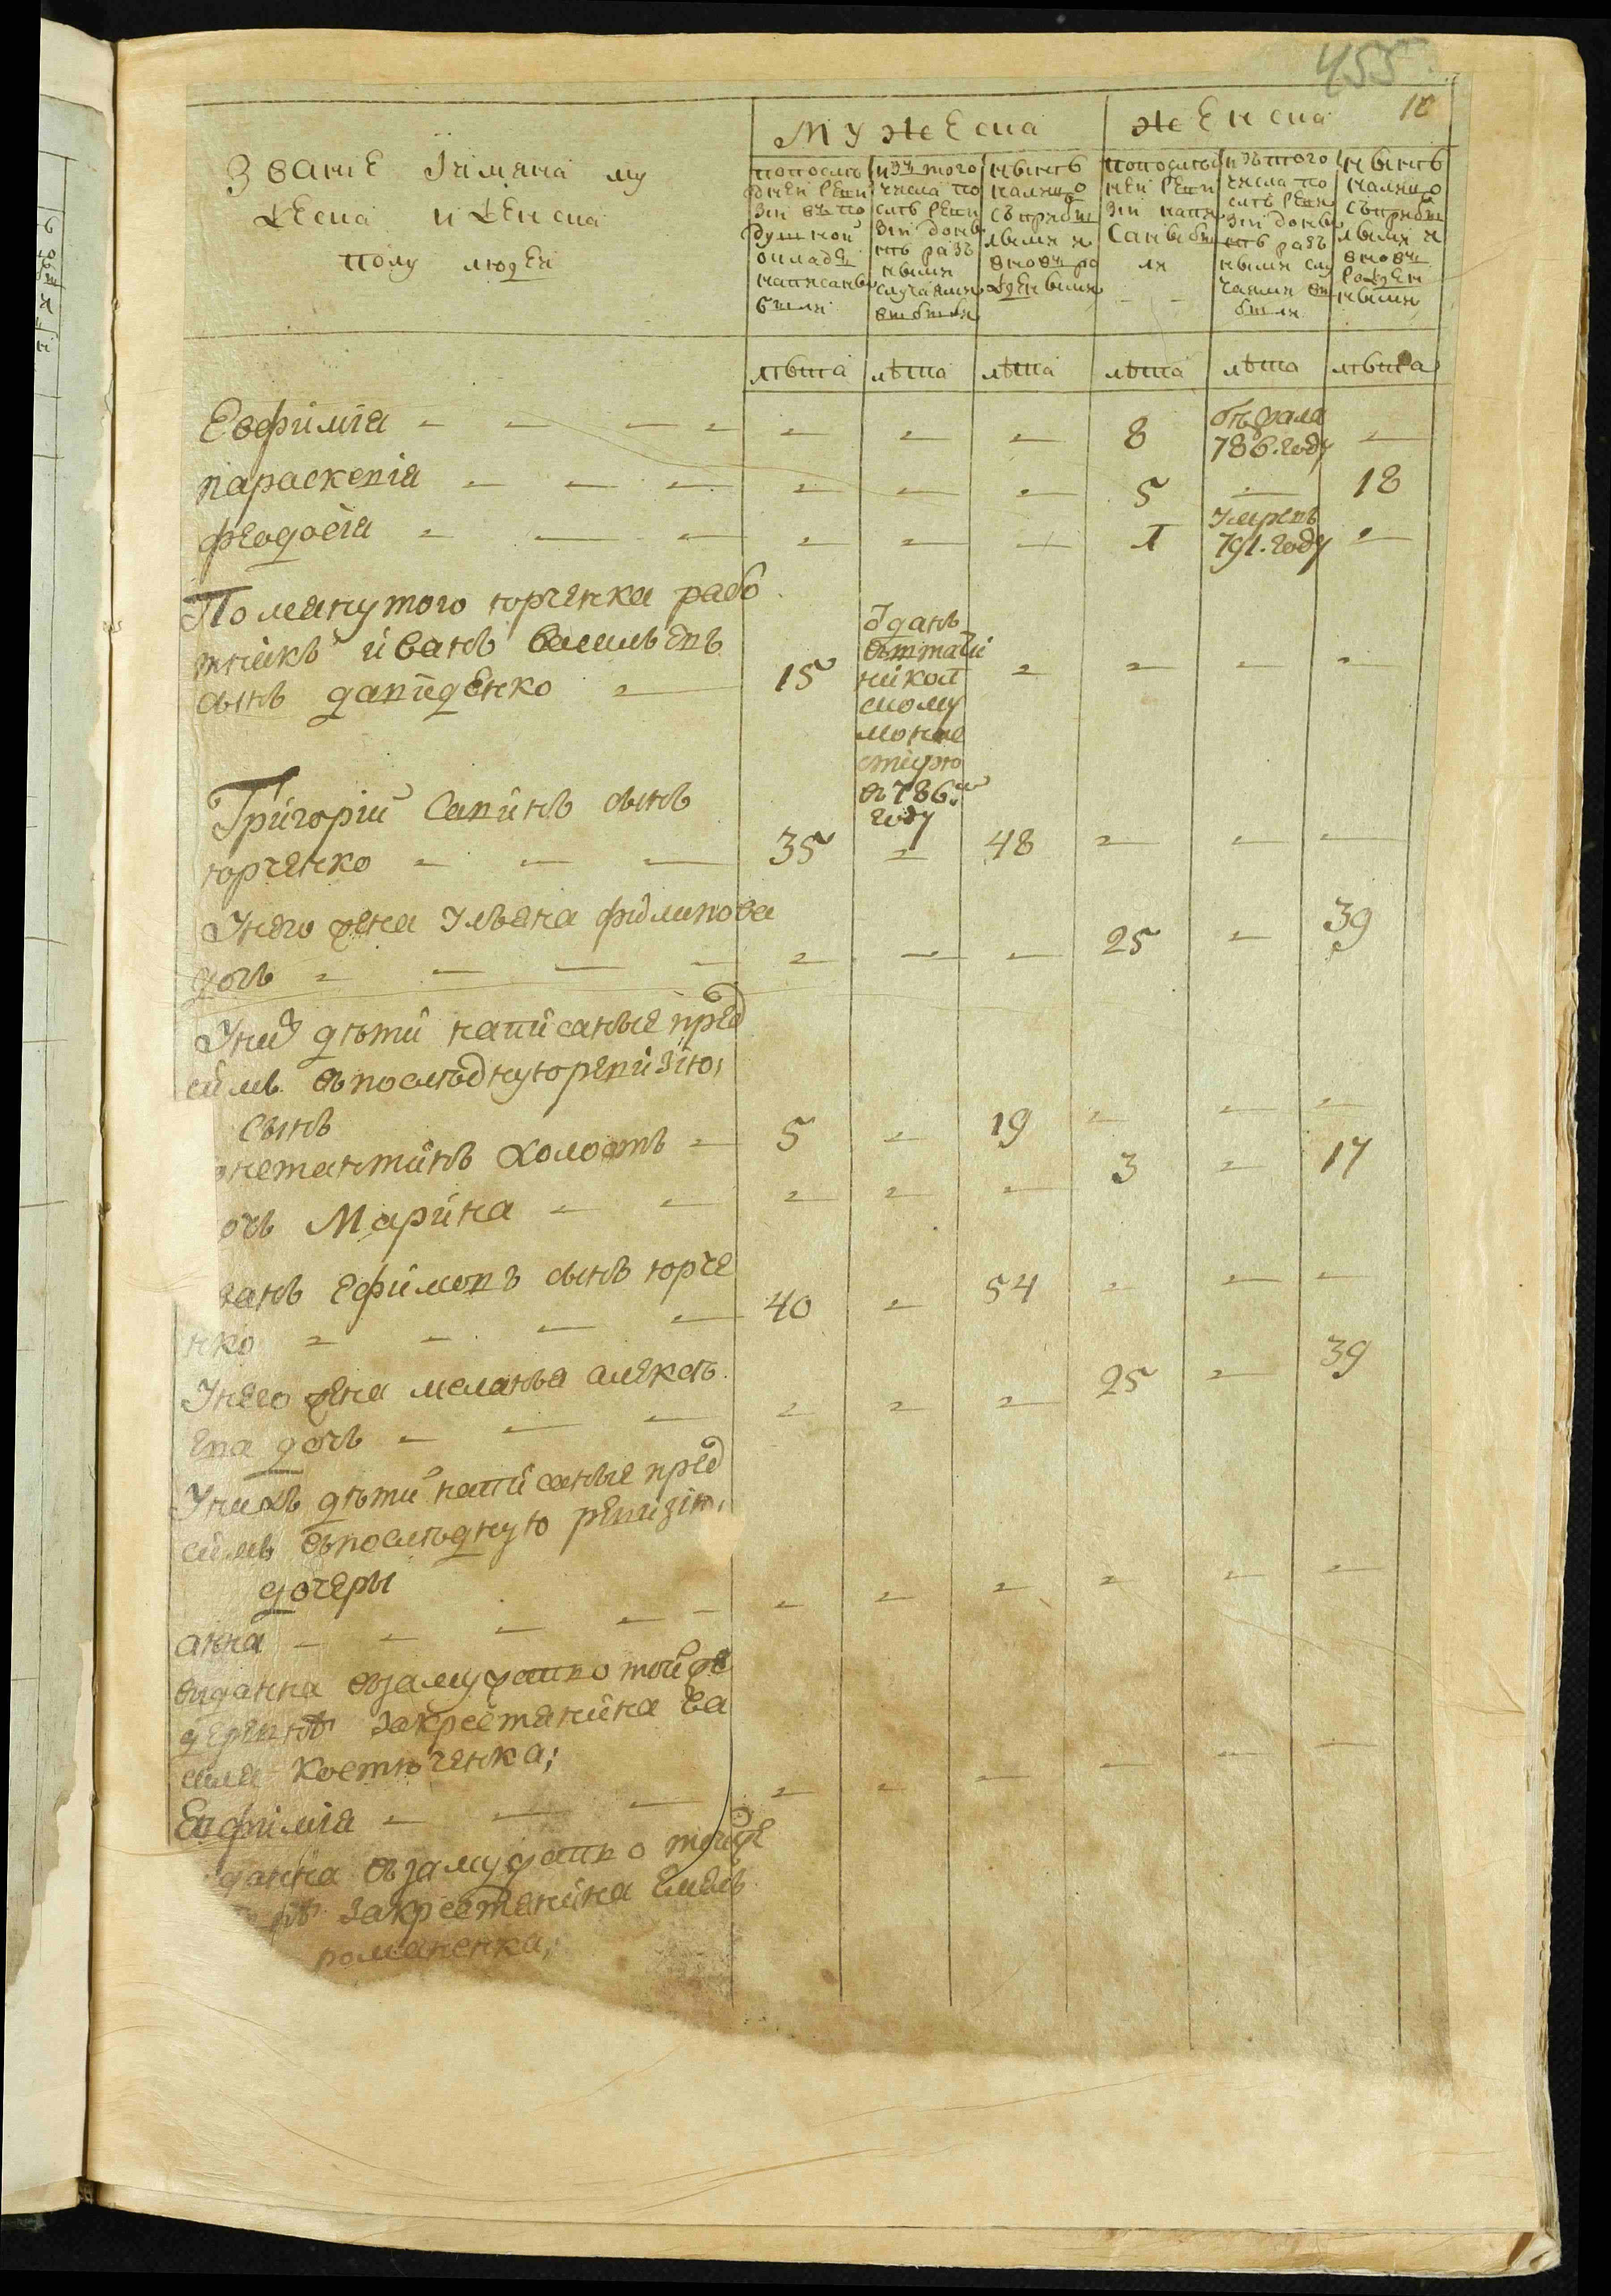 455
10
Званіе Іимяна му
жеска и женска
полу людей
Мужеска
женска
попослѣ
дней реви
зіи въ по
душной
окладъ
написаны
были
изъ того
числа по
слѣ реви
зіи доны
нѣ разъ
ными
случаями
выбыли
нынѣ
налицо
съ прибы
лыми и
вновь ро
жденными
попослѣд
ней реви
зіи напи
саны бы
ли
изъ того
числа по
слѣ реви
зіи доны
нѣ разъ
ными слу
чаями вы
были
нынѣ
налицо
съ прибы
лыми и
вновь
рожден
ными
лѣта лѣта лѣта лѣта лѣта лѣта
Евфиміа 8 786. году
параскевіа 5 18
феодосіа 1 Умре въ 791. году
Помянутого юрченка рабо
тникъ иванъ василіевъ
сынъ давиденко 15
монас
тирю
въ 786м
году
Григорій Савинъ сынъ
юрченко 35 48
Унего жена Ульяна филипова
дочь 25 39
Унихъ дѣти написаные пред
симъ въ последнуюревизію,
Сынъ
нстантинъ холостъ 5 19
очь Марина 3 17
ванъ Ефимовъ сынъ юрче
нко 40 54
Унего жена меланья алексѣ
ева дочь 25 39
Унихъ дѣти написаные пред
симъ въпоследнуюревизію,
дочеры
анна
виданна взамужство тойже
деревнѣ закрестянина ва
силя костюченка;
Евфиміа
данна взамужство тойже
нѣ закрестянина
романенка;